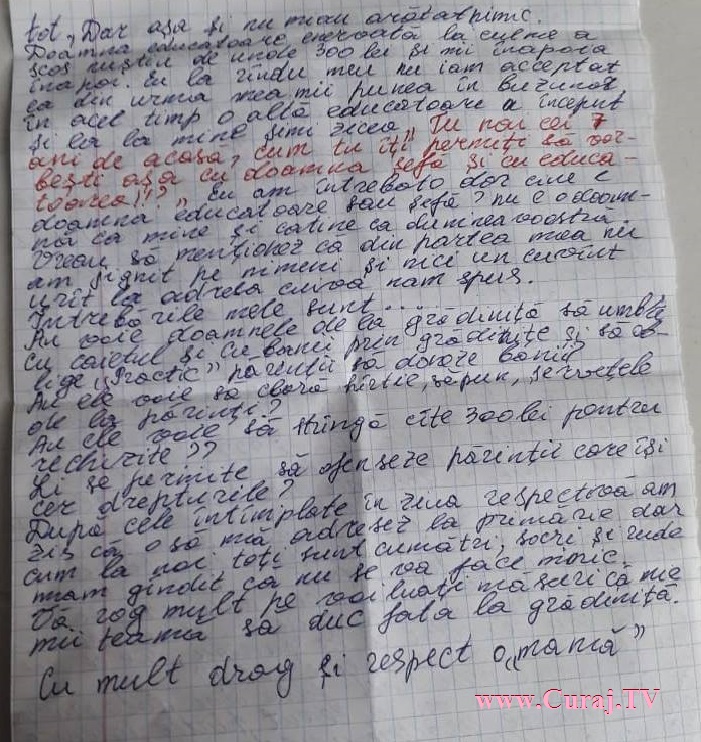 tot, Dar așa și nu miau arătat nimic.
Doamna educatoare enervată la culme a
scos nuștiu de unde 300 lei și mii înapoia
înapoi. Eu la rîndu meu nu iam acceptat
ca din urma mea mii punea în buzunar
în acel timp o altă educatoare a început
și ea la mine șimi zicea „Tu nai cei 7
ani de acasă, cum tu îți permiți să vor-
bești așa cu doamna șefă și cu educa-
toarea!!?„ Eu am întrebato dar cine e
doamna educatoare sau șefă? nu e o doam-
nă ca mine și catine ca dumneavoastră.
Vreau să menționez ca din partea mea nu
am jignit pe nimeni și nici un cuvînt
urît la adresa cuiva nam spus.
Întrebările mele sunt........
Au voie doamnele de la grădiniță să umble
cu caietul și cu banii prin grădinițe și să ob-
lige „Practic” parenții să doneze banii?
Au ele voie să ceară hîrtie, săpun, șervețele
de la părinți?
Au ele voie să strîngă cîte 300 lei pentru
rechizite??
Li se permite să ofenseze părinții care își
cer drepturile?
După cele întîmplate în ziua respectivă am
zis că o să mă adresez la primărie dar
cum la noi toți sunt cumătri, socri și rude
mam gîndit ca nu se va face nimic.
Vă rog mult pe voi luați măsuri că me
mii teamă să duc fata la grădiniță.
Cu mult drag și respect o „mamă”
www.Curaj.TV